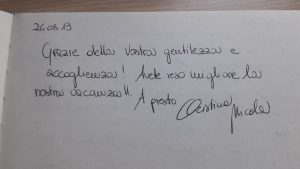 24.08.19
Grazie della vostra gentilezza e
accoglienza! Avete reso migliore la
nostra vacanza!!
A presto Cristina Nicola